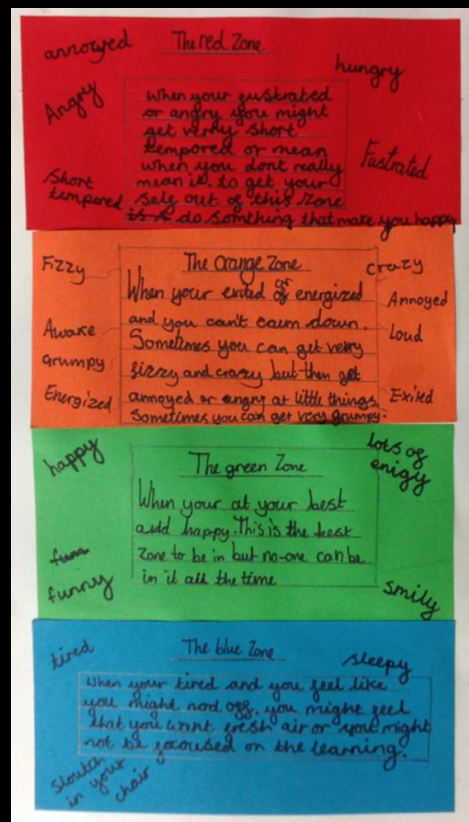 annoyed
The red Zone
hungry
Angry
When your fustrated
or angry you might
get verry short
tempored or mean
when you dont really
mean it. to get your
self out of this zone
is h do somthing that make you happy
Fustrated
short
tempored
Fizzy
The Orange Zone
crazy
When your exited or energized
and you can't calm down.
Sometimes you can get verry
fizzy and crazy but then get
annoyed or angry at little things.
Sometimes you can get very grumpy.
Annoyed
Awake
Loud
grumpy
Energized
Exited
happy
lots of
enigy
The green Zone
When your at your best
add happy. This is the best
zone to be in but no-one can be
in it all the time
funn
funny
smily
tired
The blue Zone
sleepy
When your tired and you feel like
you might nod off. you might feel
that you want fresh air or you might
not be focoused on the learning.
slouch
in your
chair